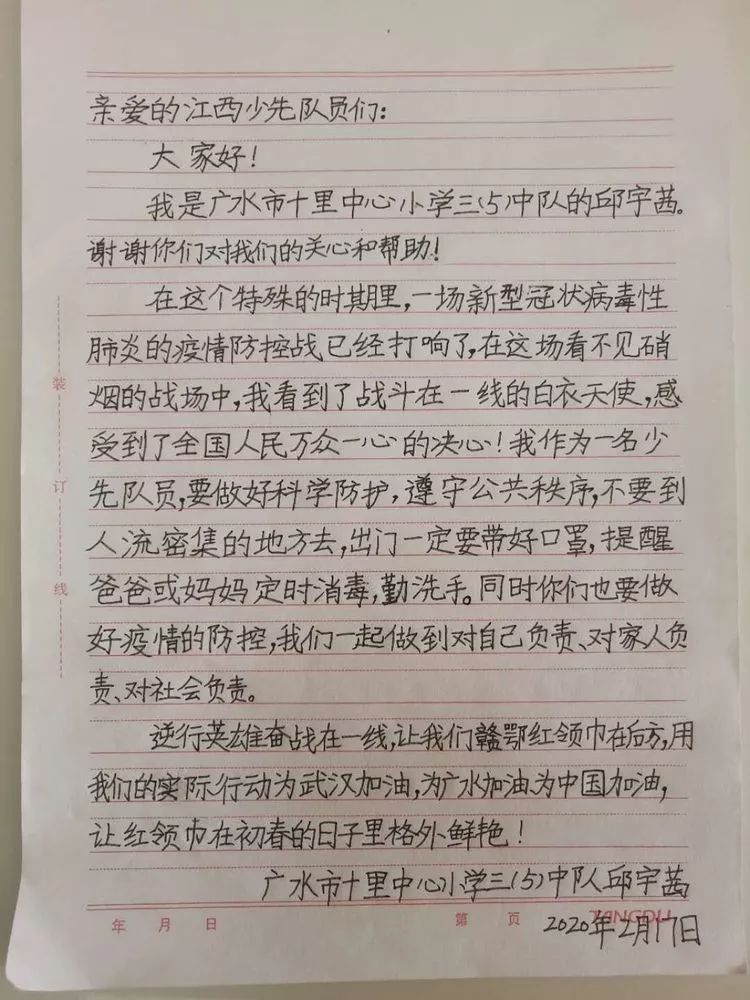 亲爱的江西少先队员们：
大家好！
我是广水市十里中心小学三(5)中队的邱宇茜。
谢谢你们对我们的关心和帮助！
在这个特殊的时期里，一场新型冠状病毒性
肺炎的疫情防控战已经打响了，在这场看不见硝
烟的战场中，我看到了战斗在一线的白衣天使，感
受到了全国人民万众一心的决心！我作为一名少
先队员，要做好科学防护，遵守公共秩序，不要到
人流密集的地方去，出门一定要带好口罩，提醒
爸爸或妈妈定时消毒，勤洗手。同时你们也要做
好疫情的防控，我们一起做到对自己负责、对家人负
责、对社会负责。
逆行英雄奋战在一线，让我们赣鄂红领巾在后方，用
我们的实际行动为武汉加油，为广水加油、为中国加油，
让红领巾在初春的日子里格外鲜艳！
广水市十里中心小学三(5)中队邱宇茜
年 月 日 第 页 TANGDU
2020年2月17日
装
订
线